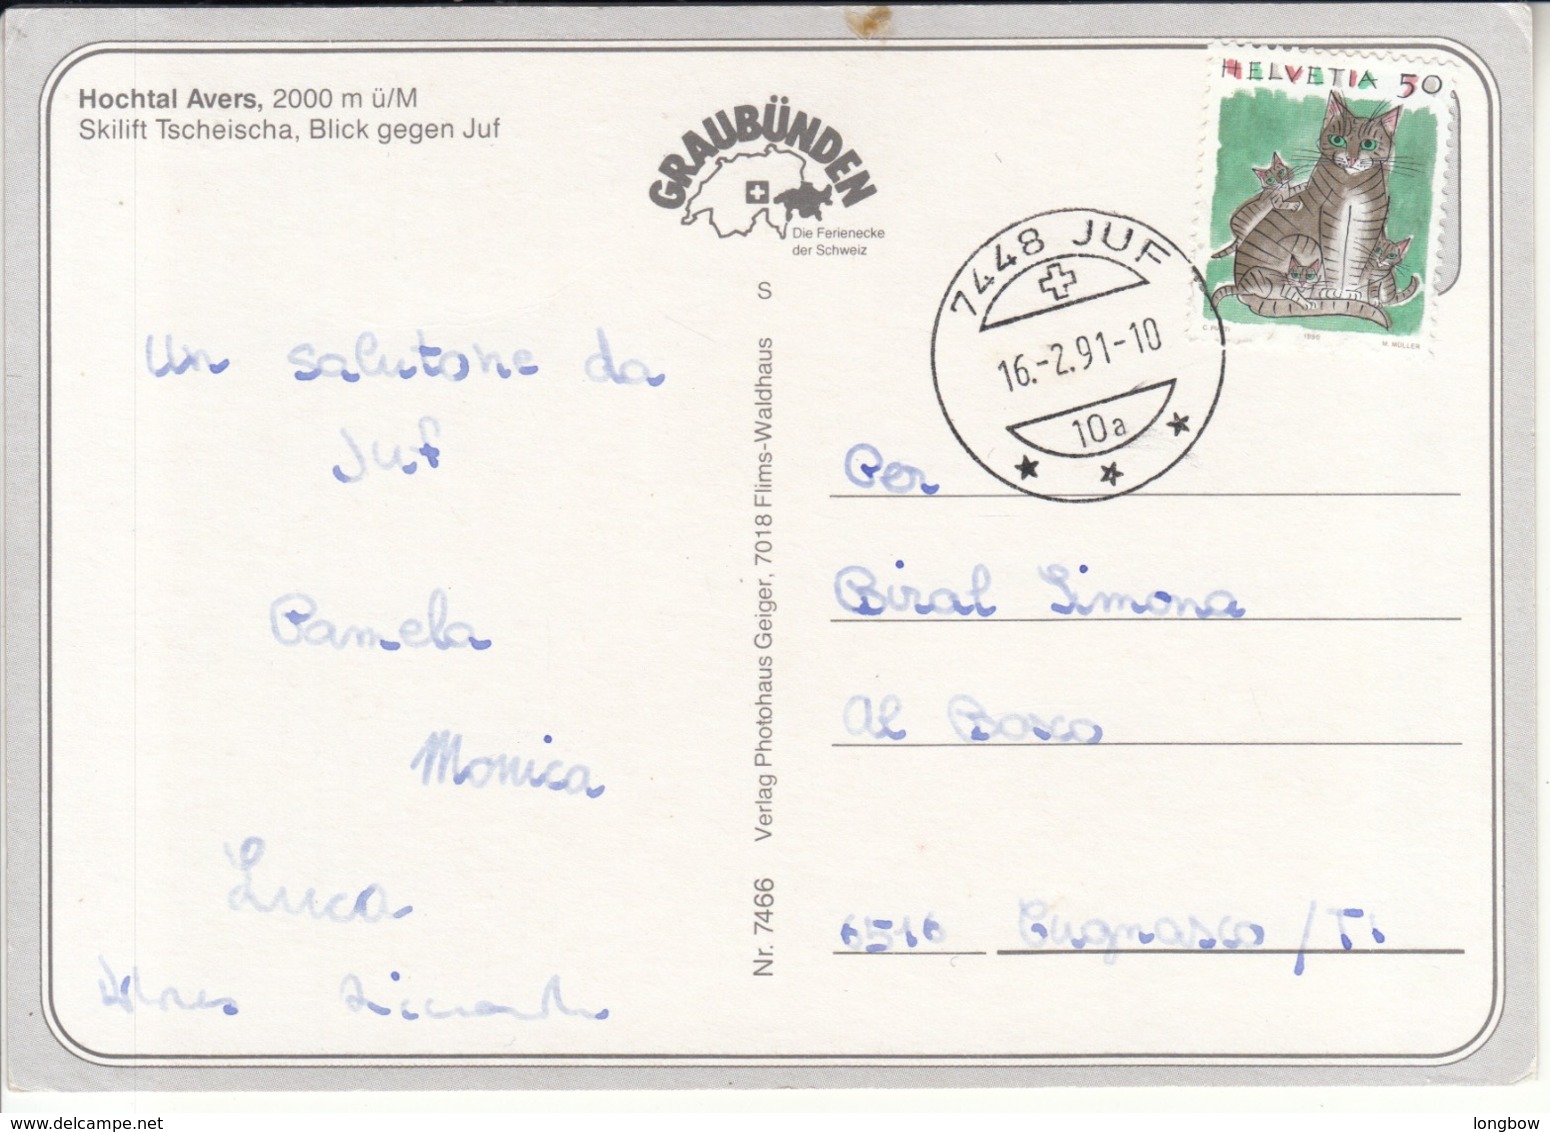 Hochtal Avers, 2000 m ü/M
Skilift Tscheischa, Blick gegen Juf
GRAUBÜNDEN
Die Ferienecke
der Schweiz
S
HELVETIA 50
1990
M. MÜLLER
7448 JUF
16.-2.91-10
10a
Un salutone da
Juf
Pamela
Monica
Luca
Nr. 7466 Verlag Photohaus Geiger, 7018 Flims-Waldhaus
Per
Biral Simona
Al Bosco
6516 Cugnasco / TI
www.delcampe.net
longbow